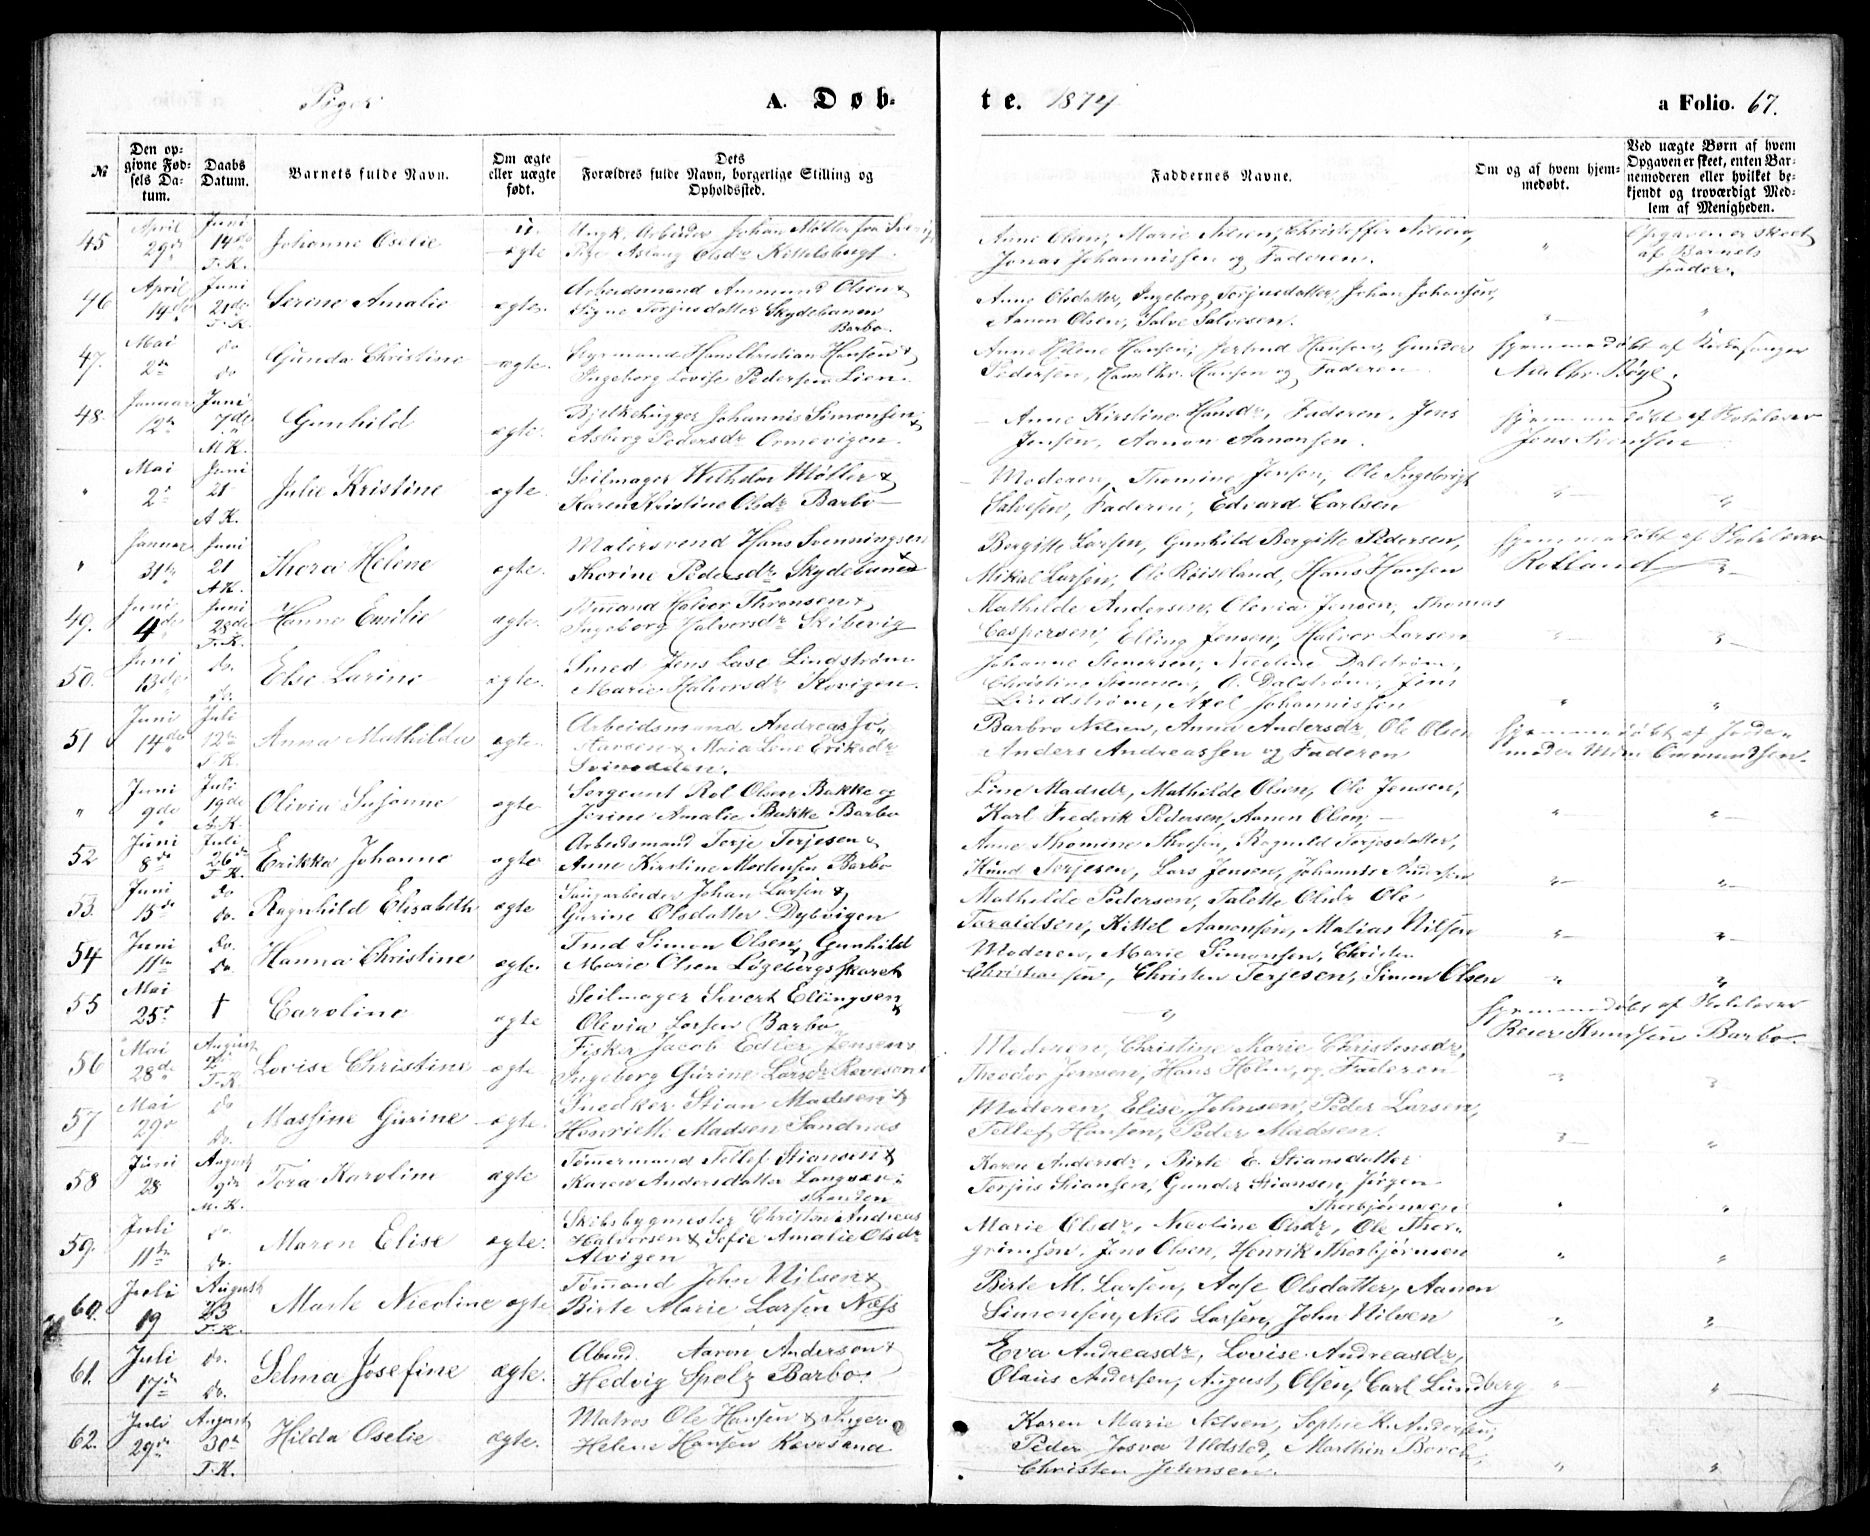 Piger
A. Døb-
te. 1874
a Folio. 67.
№
Den op-
givne Fød-
sels Da-
tum.
Daabs
Datum.
Barnets fulde Navn.
Om ægte
eller uægte
født.
Dets
Forældres fulde Navn, borgerlige Stilling og
Opholdssted.
Faddernes Navne.
Om og af hvem hjem-
medøbt.
Ved uægte Børn af hvem
Opgaven er skeet, enten Bar-
nemoderen eller hvilket be-
kjendt og troværdigt Med-
lem af Menigheden.
45 April 29de Juni 14de T.K. Johanne Oselie u ægte
Ungk. Arbeider Johan Møller fra
Pige Aslaug Olsdr Kittelsbugt
Anne Olsen, Marie Nilsen, Christoffer Nilsen,
Jonas Johannissen og Faderen.
Opgaven er skeet
af Barnets
Fader.
46 April 14de Juni 21de T.K. Serine Amalie ægte.
Arbeidsmand Ammund Olsen &
Signe Terjusdatter Skydebanen
Barbo.
Anne Olsdatter, Ingeborg Terjusdatter, Johan Johansen,
Aanon Olsen, Salve Salvesen.
47. Mai 2de do do Gunda Christine ægte.
Hans Christian Hansen &
Ingeborg Lovise Pedersen Lien.
Anne Helene Hansen, Jertrud Hansen, Gunder
Pedersen, Hans Chr. Hansen og Faderen.
Hjemmedøbt af Kirkesanger
Bøye.
48. Januar 12te Juni 7de M.K. Gunhild ægte.
Bjelkehugger Johannis Simonsen &
Asberg Pedersdr Ormevigen.
Anne Kirstine Hansdr, Faderen, Jens
Jensen, Aanon Aanonsen.
Hjemmedøbt af Skolelærer
Jens Svendsen
" Mai 2de Juni 21 A.K. Julie Kristine ægte.
Seilmager Wilhelm Møller &
Karen Kristine Olsdr Barbo
Moderen, Thomine Jensen, Ole Ingebrigt
Salvesen, Faderen, Edvard Carlsen
" Januar 31te Juni 21 A.K. Thora Helene ægte.
Malersvend Hans Svenningsen &
Thorine Pedersdr Skydebanen
Bergitte Larsen, Gunhild Bergitte Pedersen,
Mikal Larsen, Ole Røiseland, Hans Hansen
Hjemmedøbt af Skolelærer
Rolland
49. Juni 4de Juni 28de T.K. Hanne Emilie ægte.
Halvor Thronsen &
Ingeborg Halvorsdr Skibevig
Mathilde Andersen, Olevia Jensen, Thomas
Caspersen, Elling Jensen, Halvor Larsen
50. Juni 13de do. do. Else Larine ægte.
Smed Jens Lase Lindstrøm
Marie Halvorsdr Kovigen.
Johanne Stenersen, Nicoline Dalstrøm,
Christine Stenersen, O. Dalstrøm, Jens
Lindstrøm, Axel Johannissen
51 Juni 14de Juli 12te T.K. Anna Mathilde ægte.
Arbeidsmand Andreas Jo-
hansen & Maia Lene Eriksdr
Svinodden.
Barbro Nilsen, Anna Andersdr, Ole Olsen
Anders Andreassen og Faderen
Hjemmedøbt af Jorde-
moder Mina Omundsen.
" Juni 9de Juli 19de A.K. Olivia Susanne ægte
Sergeant Rol Olsen Bakke og
Jerine Amalie Bakke Barbo
Line Madsdr, Mathilde Olsen, Ole Jensen,
Karl Frederik Pedersen, Aanon Olsen,
52 Juni 8de Juli 26de T.K. Erikka Johanne ægte
Arbeidsmand Terje Terjesen &
Anne Kirstine Mortensen Barbo
Anne Thomine Thorsen, Ragnild Terjesdatter,
Knud Terjesen, Lars Jensen, Johannis Andersen
53. Juni 15de do. do. Ragnhild Elisabeth ægte
Saugarbeider Johan Larsen &
Gurine Olsdatter Dybvigen
Mathilde Pedersen, Talette Olsdr Ole
Taraldsen, Kittel Aanonsen, Matias Nilsen
54 Juni 11te do. do. Hanna Christine ægte.
Tmd Simon Olsen, & Gunhild
Marie Olsen Løgebergsskaret
Moderen, Marie Simonsen, Christen
Christiansen, Christen Terjesen, Simon Olsen
55 Mai 25de † Caroline ægte
Seilmager Sivert Ellingsen &
Olivia Larsen Barbo
Hjemmedøbt af Skolelærer
Reier Knudsen Barbo.
56 Mai 28de August 2de T.K. Lovise Christine ægte
Fisker Jacob Edser Jensen &
Ingeborg Gurine Larsdr Revesand
Moderen, Christine Marie Christensdr,
Theodor Jensen, Hans Holm, og Faderen
57 Mai 29de do do. Massine Gurine ægte.
Snedker Stian Madsen &
Henriette Madsen Sandnæs
Moderen, Elise Johnsen, Peder Larsen,
Tellef Hansen, Peder Madsen.
58 Juni 28 August 9de M.K. Tora Karoline ægte
Tømmermand Tellef Stiansen &
Karen Andersdatter Langsæv-
stranden
Karen Andersdr, Birte E. Stiansdatter
Terjus Stiansen, Gunder Stiansen, Jørgen
Thorbjørnsen
59. Juli 11te do. do. Maren Elise ægte.
Skibsbygmester Christen Andreas
Halvorsen & Sofie Amalie Olsdr
Alvigen
Marie Olsdr, Nicoline Olsdr, Ole Thor-
grimsen, Jens Olsen, Henrik Thorbjørnsen
60. Juli 19 August 23 T.K. Marte Nicoline ægte
Tømmand John Nilsen &
Birte Marie Larsen Næss
Birte M. Larsen, Aase Olsdatter, Aanon
Simonsen, Nils Larsen, John Nilsen
61. Juli 17de do. do. Selma Josefine ægte.
Abmd. Aaron Anderson &
Hedvig Spelz Barbo.
Eva Andreasdr, Lovise Andreasdr,
Olaus Andersen, August Olsen, Carl Lundberg
62. Juli 29de August 30te T.K. Hilda Oselie ægte.
Matros Ole Hansen & Inger
Helene Hansen Revesand
Karen Marie Nilsen, Sophie K. Andersen,
Peder Josva Uldsted, Marthin Borch,
Christen Johnsen.